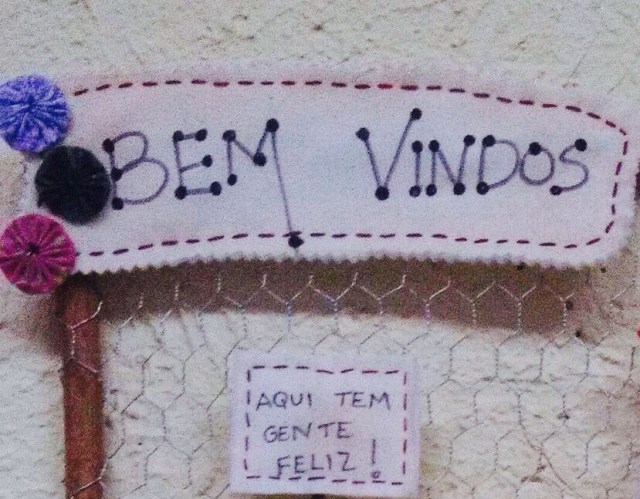 BEM VINDOS
AQUI TEM
GENTE
FELIZ!